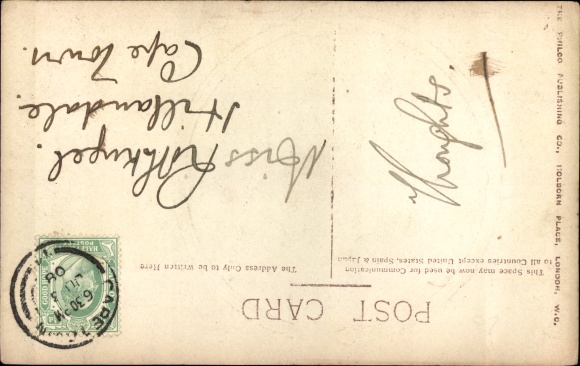 POST CARD
This Space may now be used for Communication
to all Countries except United States, Spain & Japan
The Address Only to be Written Here
Thoughts.
Miss
Hillandale.
Cape Town.
THE PHILCO PUBLISHING CO., HOLBORN PLACE, LONDON, W.C.
HALF
POSTAGE
CAPE TOWN
6.30 PM
08